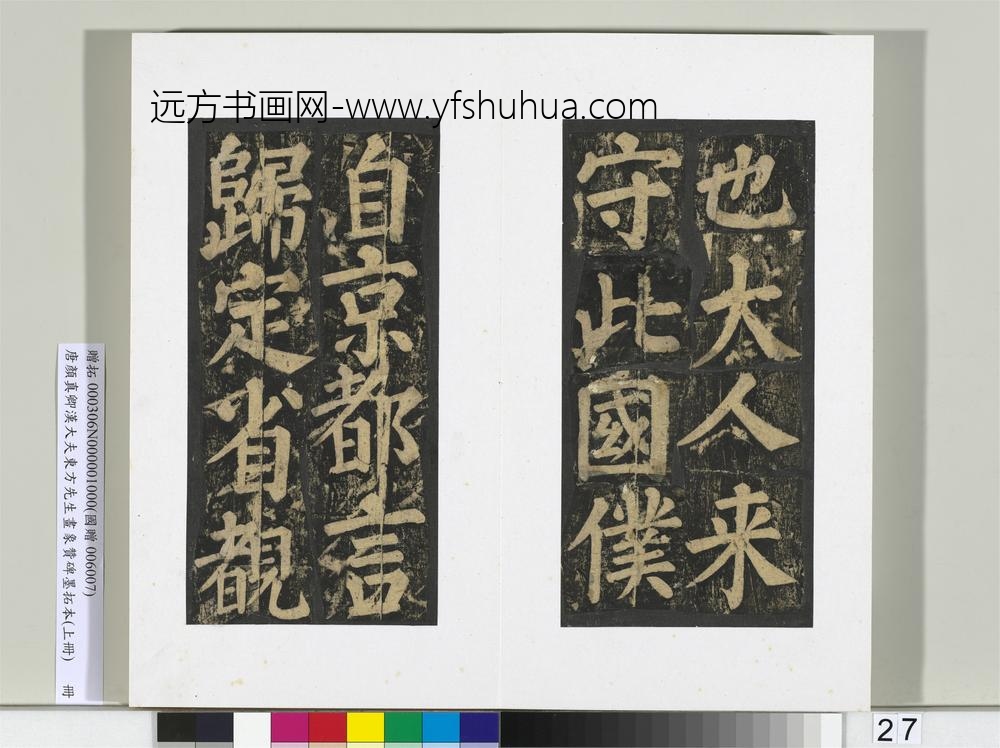 远方书画网-www.yfshuhua.com
也大人来
守此國僕
自京都言
歸定省覩
贈拓 000306N000001000(國贈 006007)
唐顏真卿漢大夫東方先生畫象贊碑墨拓本(上冊) 冊
27